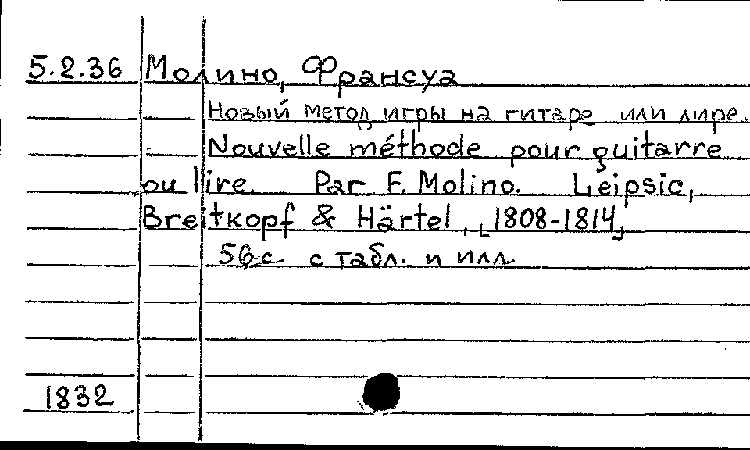 5.2.36 Молино, Франсуа
Новый метод игры на гитаре или лире.
Nouvelle méthode pour guitarre
ou lire. Par F. Molino. Leipsic,
Breitkopf & Härtel, [1808-1814]
56 с. с табл. и илл.
1832